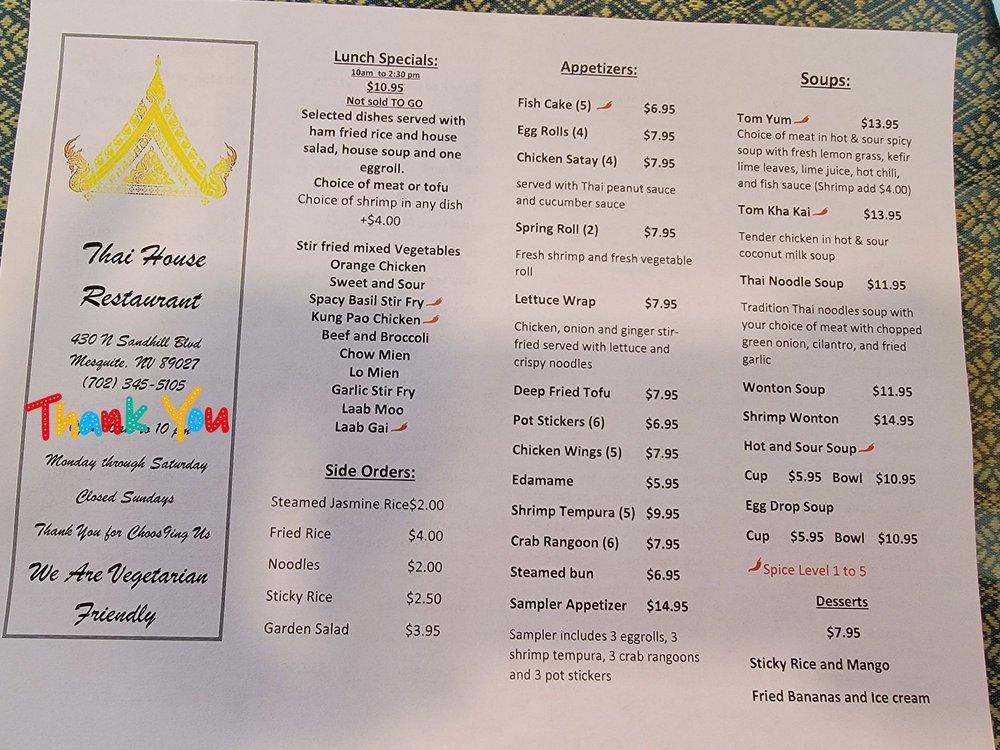 Thai House
Restaurant
430 N Sandhill Blvd
Mesquite, NV 89027
(702) 345-5105
Thank You
to 10 pm
Monday through Saturday
Closed Sundays
Thank You for Choos9ing Us
We Are Vegetarian
Friendly
Lunch Specials:
10am to 2:30 pm
$10.95
Not sold TO GO
Selected dishes served with
ham fried rice and house
salad, house soup and one
eggroll.
Choice of meat or tofu
Choice of shrimp in any dish
+$4.00
Stir fried mixed Vegetables
Orange Chicken
Sweet and Sour
Spacy Basil Stir Fry
Kung Pao Chicken
Beef and Broccoli
Chow Mien
Lo Mien
Garlic Stir Fry
Laab Moo
Laab Gai
Side Orders:
Steamed Jasmine Rice$2.00
Fried Rice $4.00
Noodles $2.00
Sticky Rice $2.50
Garden Salad $3.95
Appetizers:
Fish Cake (5) $6.95
Egg Rolls (4) $7.95
Chicken Satay (4) $7.95
served with Thai peanut sauce
and cucumber sauce
Spring Roll (2) $7.95
Fresh shrimp and fresh vegetable
roll
Lettuce Wrap $7.95
Chicken, onion and ginger stir-
fried served with lettuce and
crispy noodles
Deep Fried Tofu $7.95
Pot Stickers (6) $6.95
Chicken Wings (5) $7.95
Edamame $5.95
Shrimp Tempura (5) $9.95
Crab Rangoon (6) $7.95
Steamed bun $6.95
Sampler Appetizer $14.95
Sampler includes 3 eggrolls, 3
shrimp tempura, 3 crab rangoons
and 3 pot stickers
Soups:
Tom Yum $13.95
Choice of meat in hot & sour spicy
soup with fresh lemon grass, kefir
lime leaves, lime juice, hot chili,
and fish sauce (Shrimp add $4.00)
Tom Kha Kai $13.95
Tender chicken in hot & sour
coconut milk soup
Thai Noodle Soup $11.95
Tradition Thai noodles soup with
your choice of meat with chopped
green onion, cilantro, and fried
garlic
Wonton Soup $11.95
Shrimp Wonton $14.95
Hot and Sour Soup
Cup $5.95 Bowl $10.95
Egg Drop Soup
Cup $5.95 Bowl $10.95
Spice Level 1 to 5
Desserts
$7.95
Sticky Rice and Mango
Fried Bananas and Ice cream